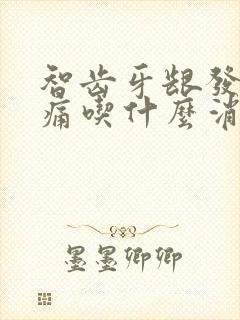 智齿牙龈發
痛喫什麼消
墨墨卿卿